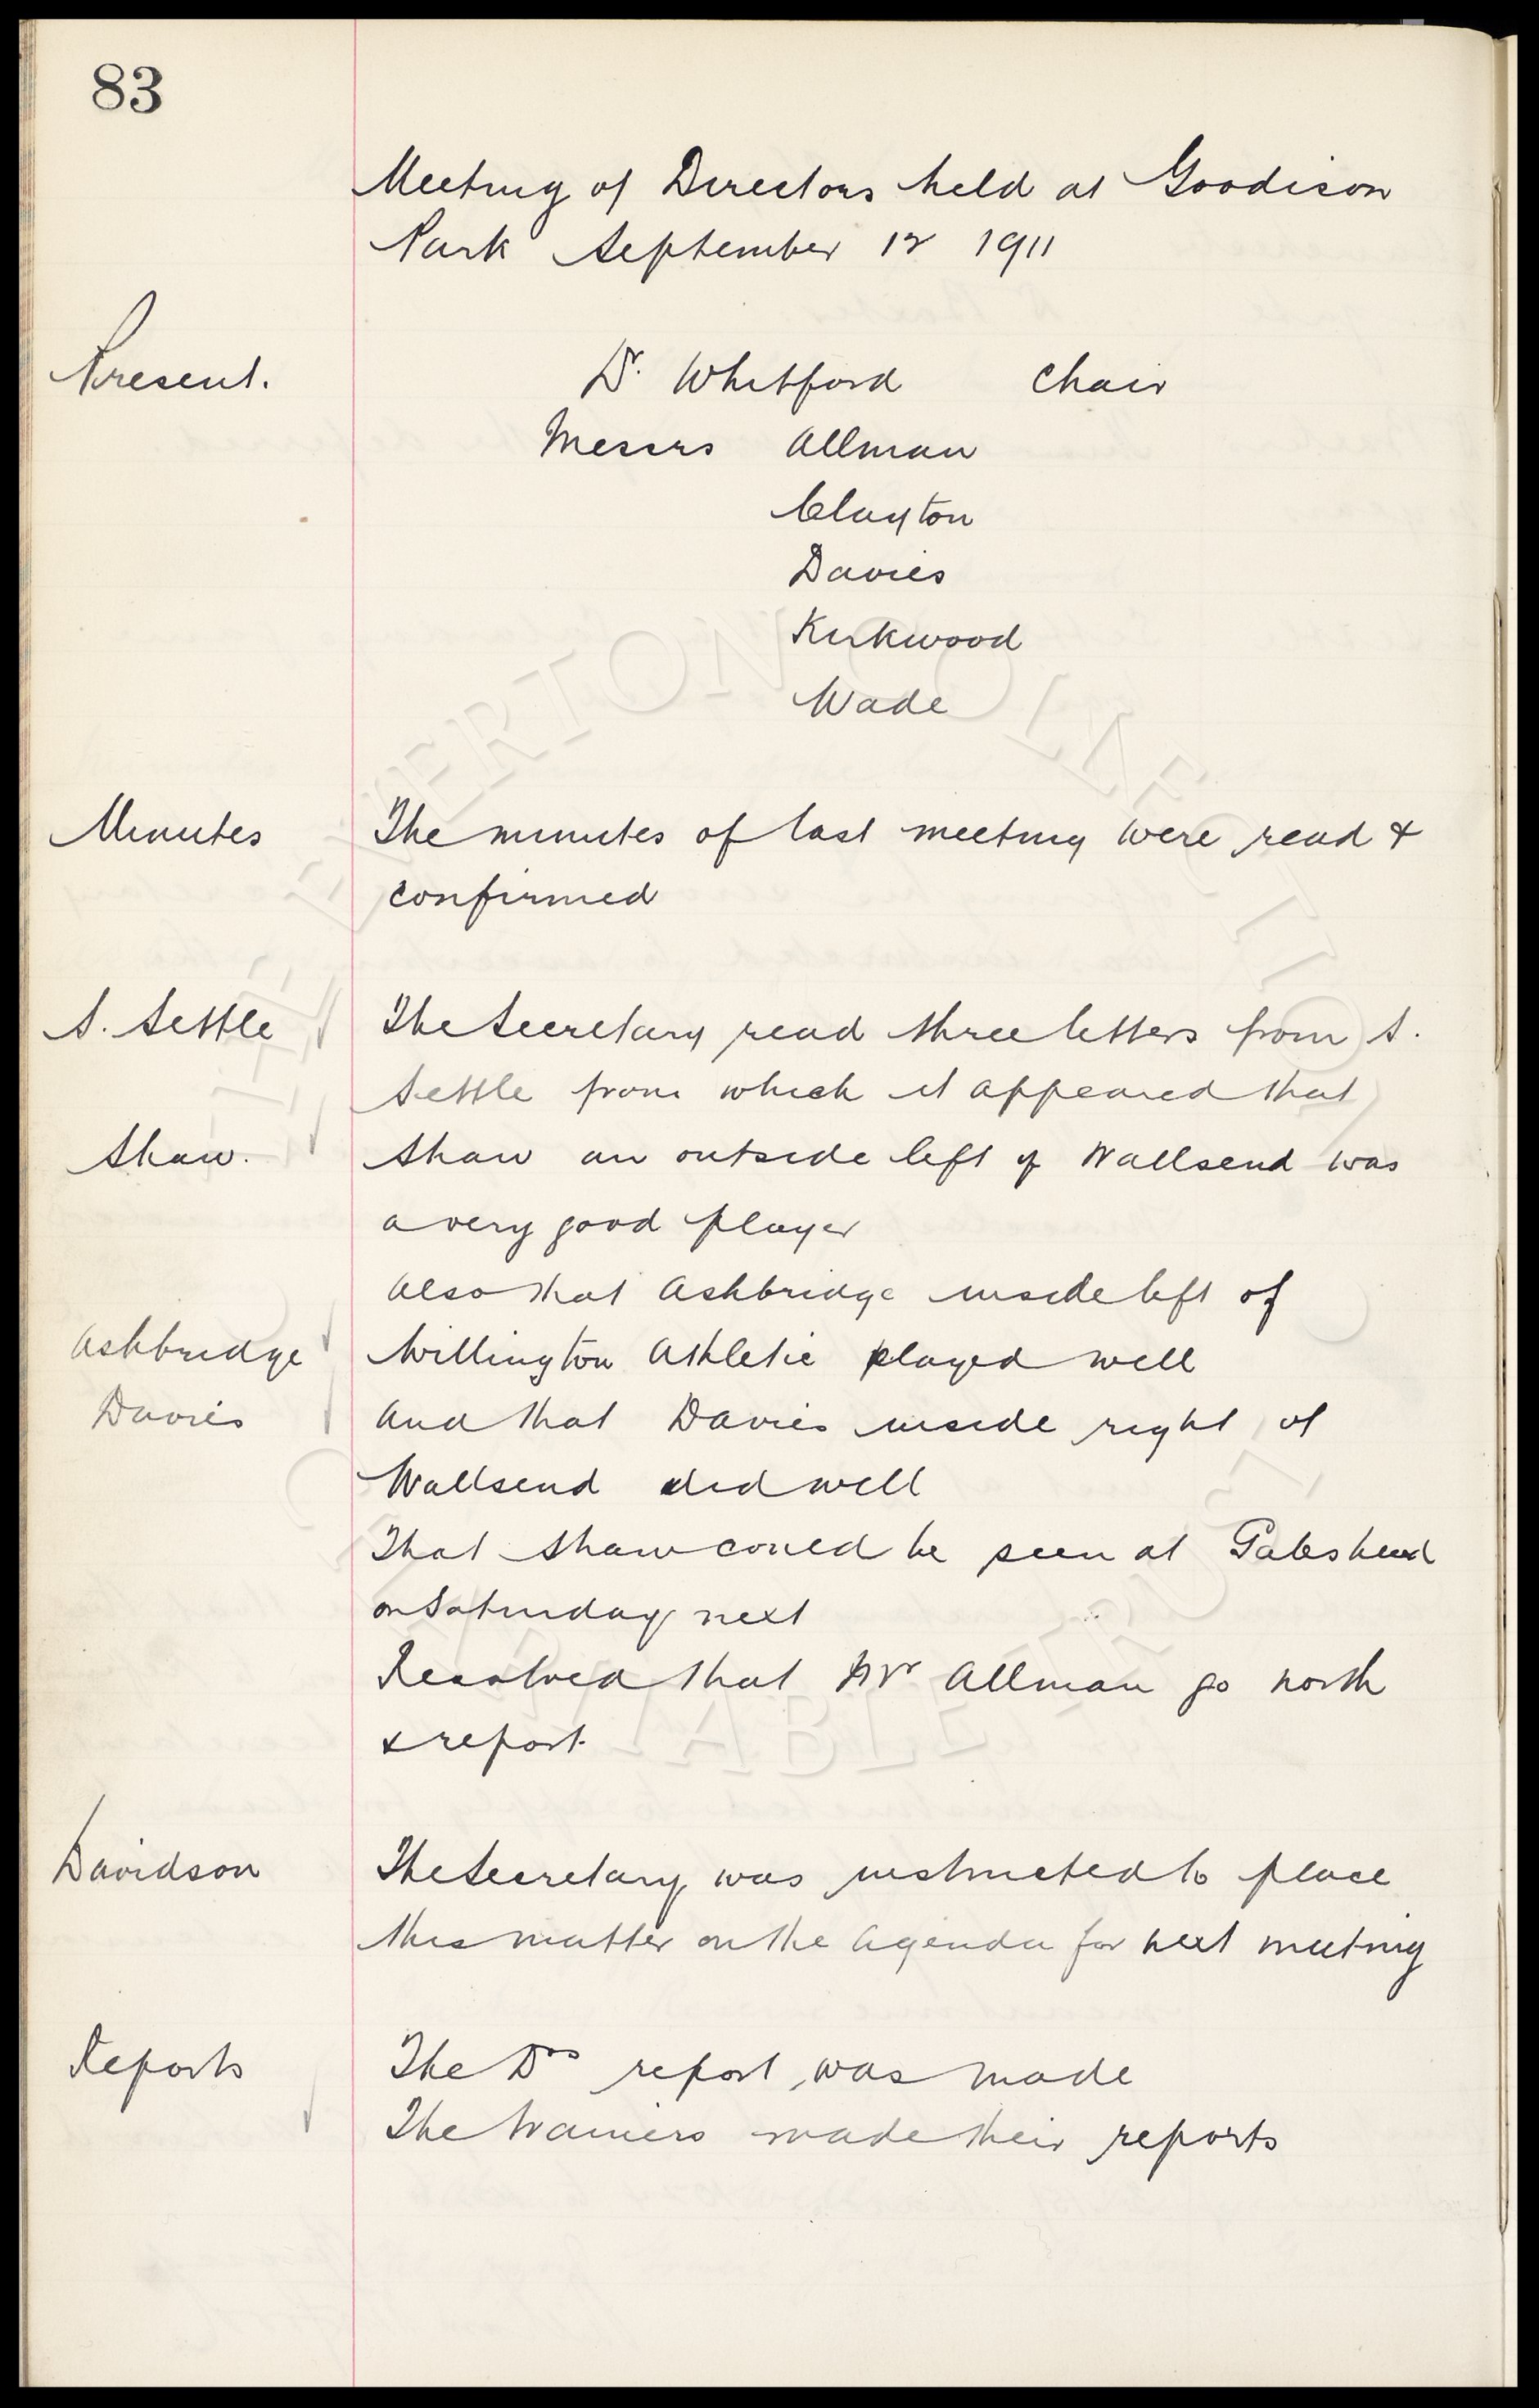 83
Meeting of Directors held at Goodison
Park September 12 1911
Present.
Dr. Whitford Chair
Messrs Allman
Clayton
Davies
Kirkwood
Wade
Minutes
The minutes of last meeting were read &
confirmed
S. Settle
The Secretary read three letters from S.
Settle from which it appeared that
Shaw.
Shaw an outside left of Wallsend was
a very good player
Also that Ashbridge inside left of
Ashbridge
Willington Athletic played well
Davies
and that Davies inside right of
Wallsend did well
That Shaw could be seen at Gateshead
on Saturday next
Resolved that Mr Allman go north
& report.
Davidson
The Secretary was instructed to place
this matter on the Agenda for next meeting
Reports
The Drs report was made
The Trainers made their reports
THE EVERTON COLLECTION
CHARITABLE TRUST